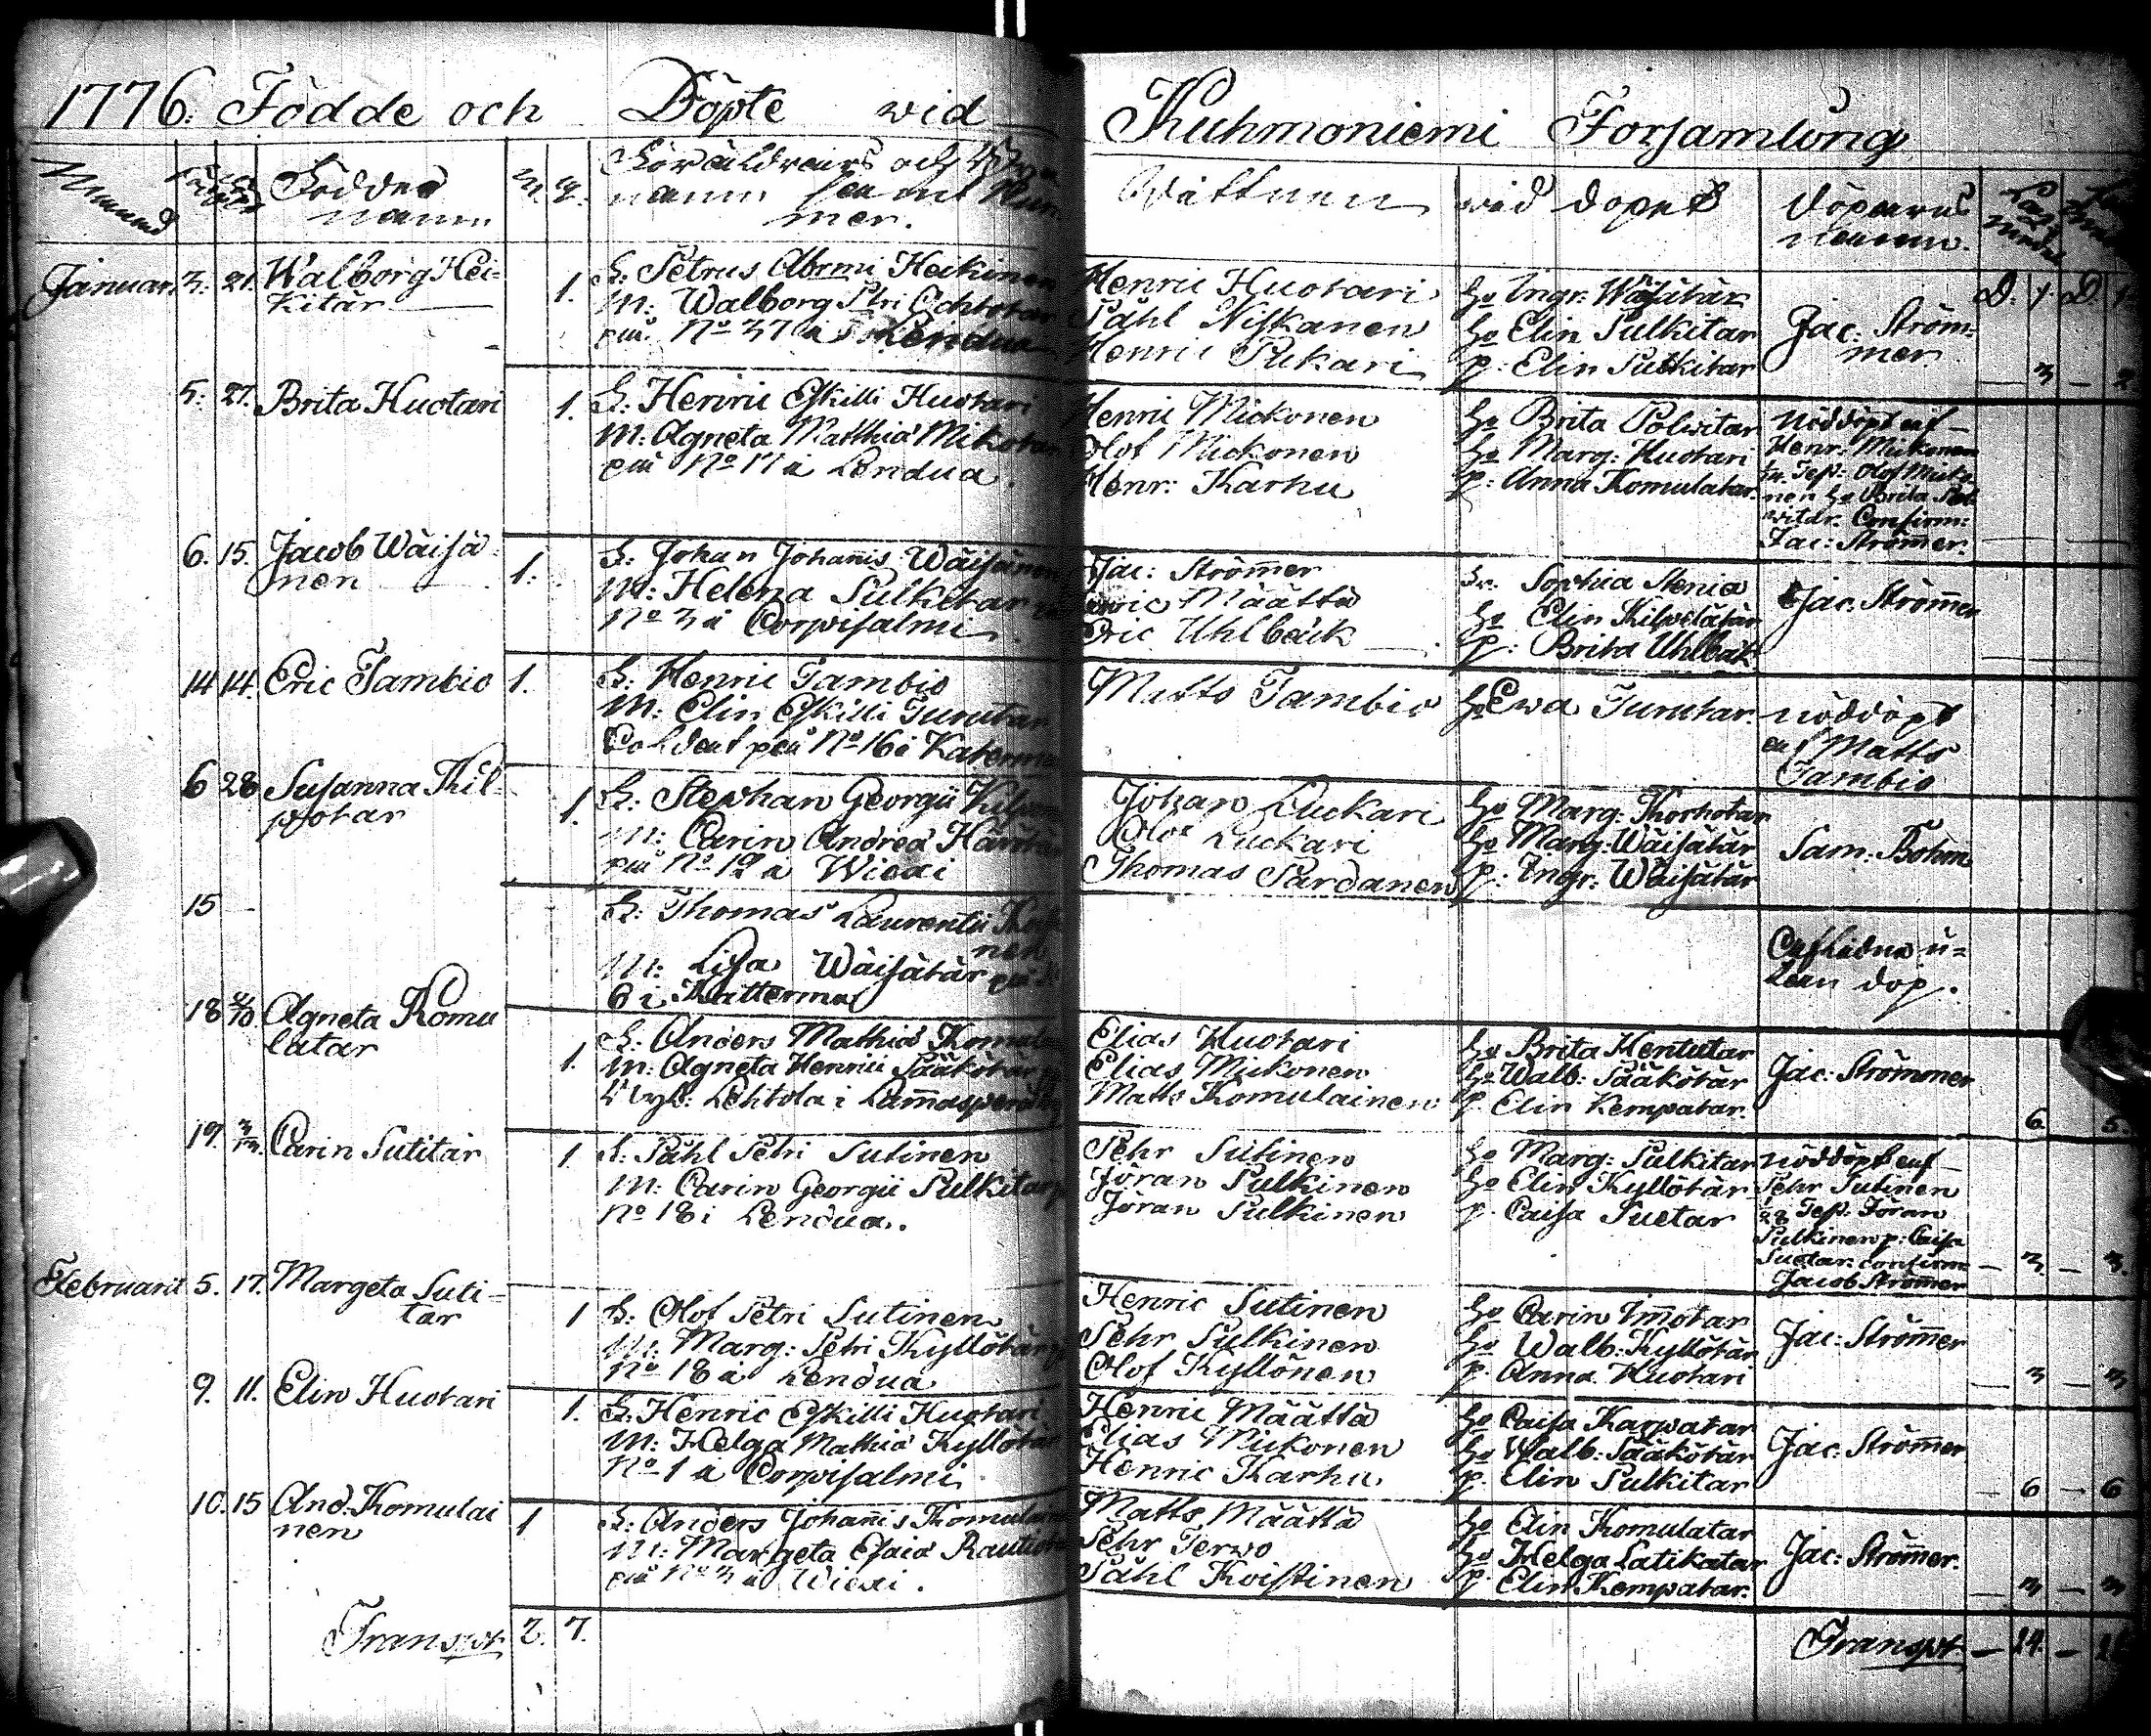 1776. Födde och Döpte wid Kuhmoniemi Forsamlüng
Månad
Foddas namn
M. Q.
Föräldrars och
namn samt Num
mer.
Wittnen wid dopet
döparens
namn.
Januari 3. 21. Walborg Hei-
kitär
1.
F: Petrus Abrmi Heikinen
M: Walborg Ptri Ochtotar
på No 37 à Lendua
Henric Huotari
Påhl Niskanen
Henric Pukari
Ho Ingr: Wäisätär
Ho Elin Pulkitar
p: Elin Pulkitar
Jac: Ström-
mer
D. 1. D. 1.
3 — 2
5. 27. Brita Huotari
1.
F: Henric Eskilli Huotari
M: Agneta Matthiæ Mikotar
på No 17 à Lendua.
Henric Mickonen
Olof Mickonen
Henr: Karhu
Ho Brita Polwitar
Ho Marg: Huotari
p: Anna Komulatar.
Nöddöpt af
Henr: Mickonen
Test: Olof Micko-
nen Ho Brita Pol
witar. Confirm:
Jac: Strömer.
6. 15. Jacob Wäisä-
nen
1.
F: Johan Johanis Wäisänen
M: Helena Pulkitar
No 3 à Corpisalmi
Jac: Strömer
Eric Määttä
Eric Uhlbäck
Sophia Stenia
Ho Elin Kilpelätär
p: Brita Uhlbäk
Jac. Strömer
14 14. Eric Tambio 1.
F: Henric Tambio
M: Elin Eskilli Turutar
Soldat på No 16 i Katerma
Matts Tambio
Ho Ewa Turutar.
nöddöpt
af Matts
Tambio
6 28 Susanna Kil-
potar
1.
F: Stephan Georgii
M: Carin Andreæ
på No 12 à Wiexi
Johan Luckari
Olof Luckari
Thomas Pardanen
Ho Marg: Korhotar
Ho Marg: Wäisätär
p: Ingr: Wäisätär
Sam: Böhm
15
F: Thomas Laurentii
nen
M: Lisa Wäisätär
6 i Katterma
Afliden u-
tan dop.
18 Agneta Komu
latar
1.
F: Anders Mathiæ
M: Agneta Henrici Pääkötär
Nyb: Lehtola i
Elias Huotari
Elias Mickonen
Matts Komulainen
Ho Brita Hentutar
Ho Walb: Pääkötär
p. Elin Kempatar.
Jac: Strömmer
6 5.
19. Carin Sutitar
1.
F: Påhl Petri Sutinen
M: Carin Georgii Pulkitar
No 18 i Lendua.
Pehr Sutinen
Jöran Pulkinen
Jöran Pulkinen
Ho Marg: Pulkitar
Ho Elin Kyllötär
p. Caisa Suetar
nöddöpt af
Pehr Sutinen
Test: Jöran
Pulkinen p: Caisa
Suetar. confirm
Jacob Strömer
— 3. — 3.
Februarii 5. 17. Margeta Suti-
tar
1
F: Olof Petri Sutinen
M: Marg: Petri Kyllötär
No 18 à Lendua
Henric Sutinen
Pehr Pulkinen
Olof Kyllönen
Ho Carin Imotar
Ho Walb: Kyllötär
p. Anna Huotari
Jac: Strömer
— 3 — 3
9. 11. Elin Huotari
1.
F: Henric Eskilli Huotari
M: Helga Mathiæ Kyllötär
No 1 à Corpisalmi
Henric Määttä
Elias Mickonen
Henric Karhu
Ho Caisa Karpatar
Ho Walb: Pääkötär
p. Elin Pulkitar
Jac: Strömer
— 6 — 6
10. 15 And: Komulai
nen
1
F: Anders Johañis Komulainen
M: Margeta Esaiæ
på No 3 à Wiexi.
Matts Määttä
Pehr Terwo
Påhl Koistinen
Ho Elin Komulatar
Ho Helga Latikatar
p. Elin Kempatar.
Jac: Strömer.
— 3 — 3
Transpt 2. 7.
Transpt — 24. —